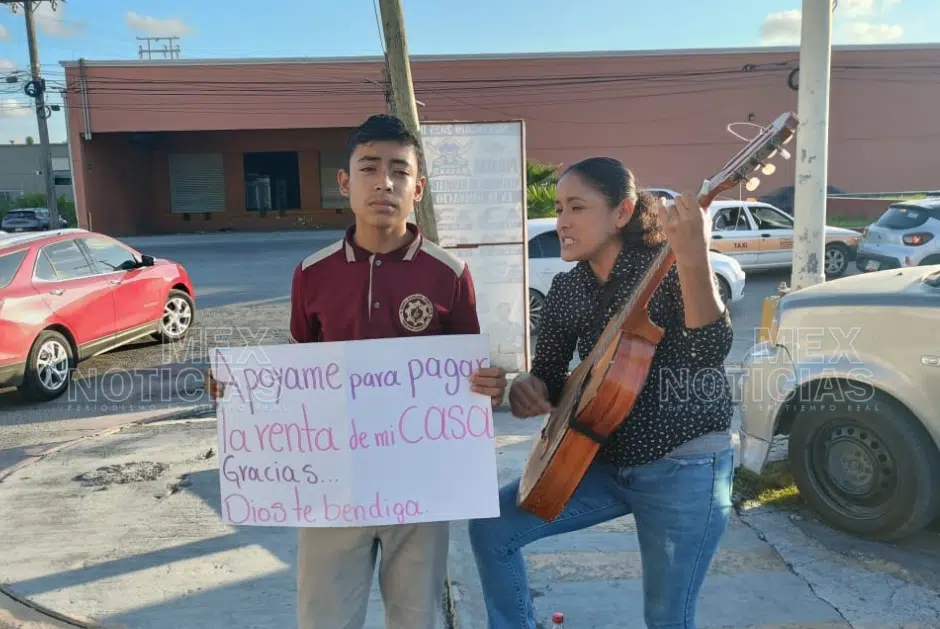 Apóyame para pagar
la renta de mi CASA
Gracias...
Dios te bendiga.
TAXI
MEX
NOTICIAS
PERIODISMO EN TIEMPO REAL
MEX
NOTICIAS
PERIODISMO EN TIEMPO REAL